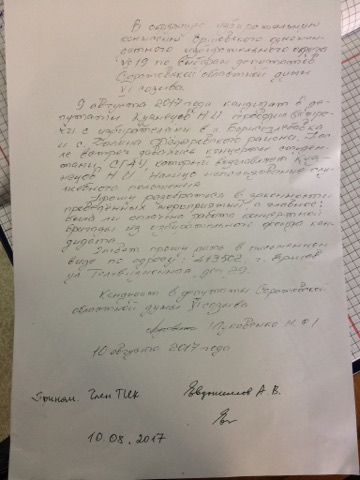 В окружную избирательную
комиссию Ершовского одноман-
датного избирательного округа
№ 19 по выборам депутатов
Саратовской областной думы
VI созыва.
9 августа 2017 года кандидат в де-
путаты Кузнецов Н.И. проводил встре-
чи с избирателями в
и с. Долина Фёдоровского района. По-
сле встреч давались концерты студен-
тами СГАУ, который возглавляет Куз-
нецов Н.И. Налицо использование слу-
жебного положения.
Прошу разобраться в законности
проведённых мероприятий и главное:
была ли оплачена работа концертной
бригады из избирательного фонда кан-
дидата.
Ответ прошу дать в письменном
виде по адресу: 413502 г. Ершов
ул. Телевизионная, д. 29.
Кандидат в депутаты Саратовской
областной думы VI созыва
10 августа 2017 года
Принял: Член ТИК Евдокимов А. В.
10.08.2017